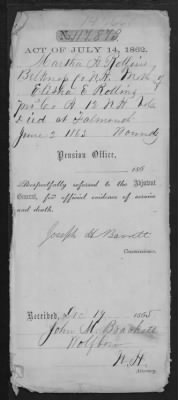 No. 117,878
ACT OF JULY 14, 1862.
Martha A. Rollins
Belknap Co N.H. Moth of
Elisha E Rollins
B 12 N.H. Vols
Died at Falmouth
June 2 1863 Wounds
Pension Office,
186
Respectfully referred to the Adjutant
General, for official evidence of service
and death.
Joseph H Barrett
Commissioner.
Received, Dec 19 1865
John M. Brackett
Wolfboro
N.H.
Attorney.